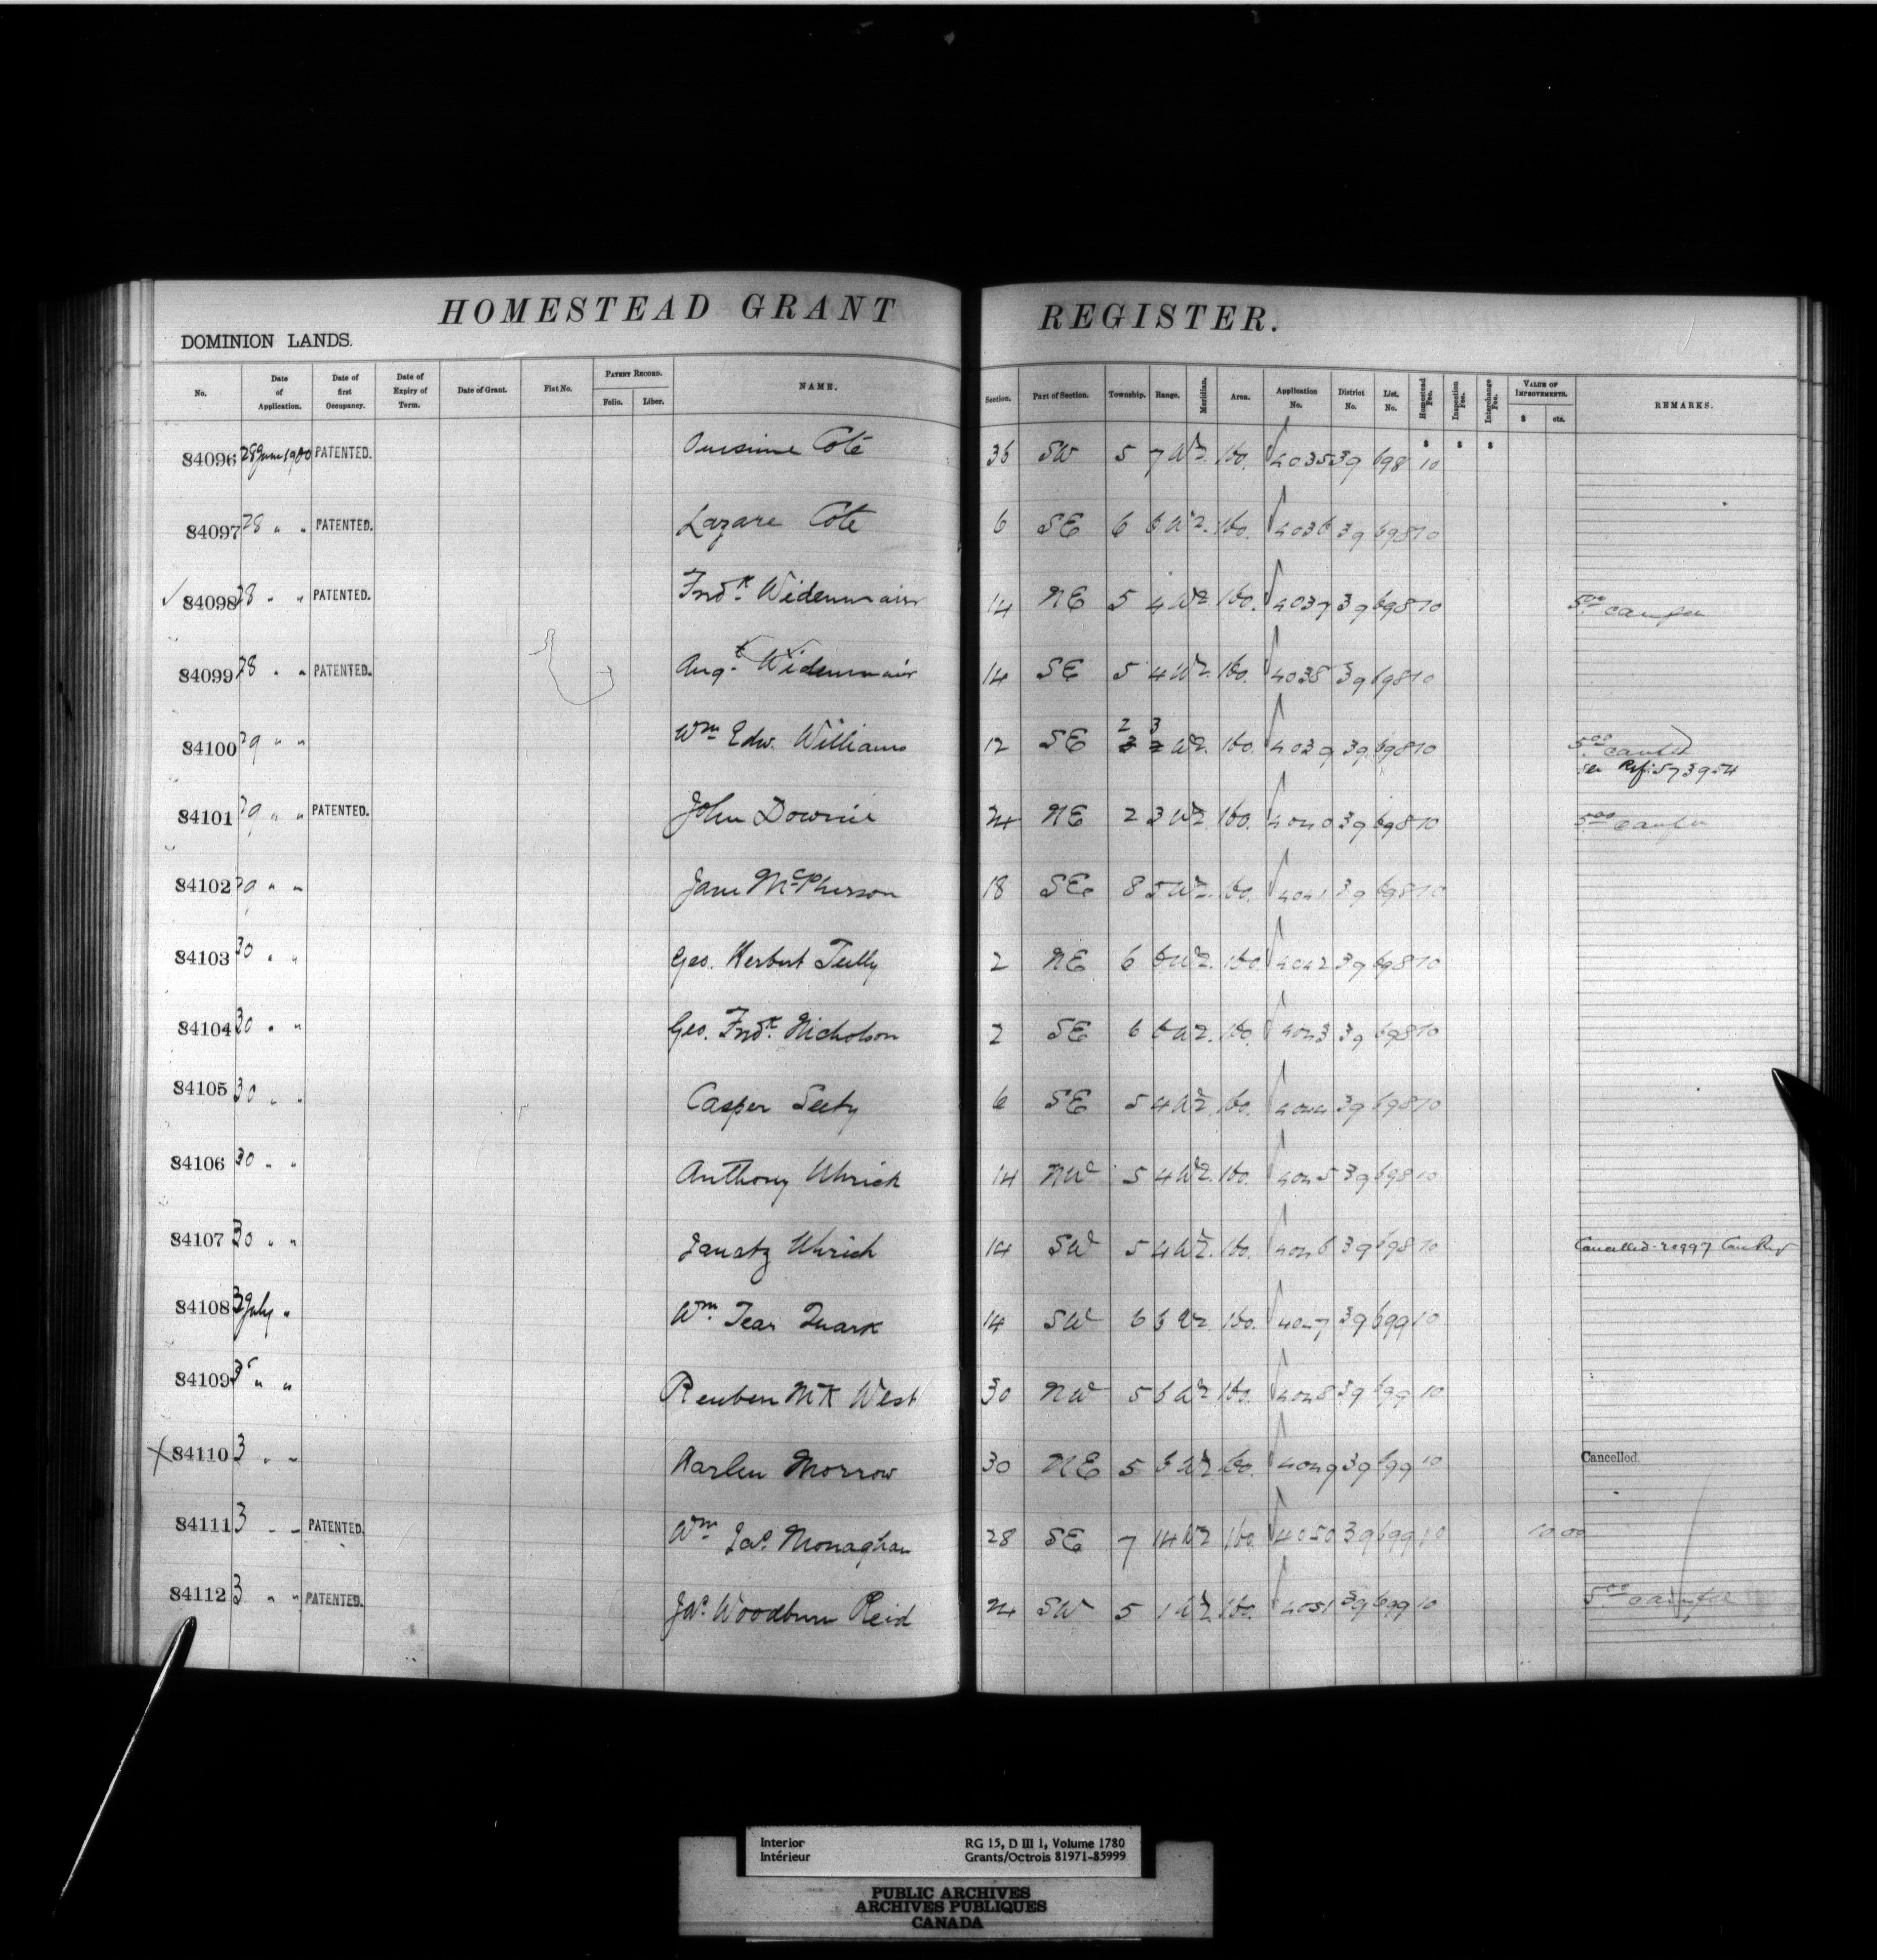 HOMESTEAD GRANT REGISTER.
DOMINION LANDS.
No. Date of Application. Date of first Occupancy. Date of Expiry of Term. Date of Grant. Fiat No. PATENT RECORD. Folio. Liber. NAME. Section. Part of Section. Township. Range. Meridian. Area. Application No. District No. List. No. Homestead Fee. Inspection Fee. Interchange Fee. VALUE OF IMPROVEMENTS. $ cts. REMARKS.
$ $ $
84096 28 June 1900 PATENTED. Onesime Coté 36 SW 5 7 W2. 160. 4035 39 698 10
84097 28 " " PATENTED. Lazare Cote 6 SE 6 6 W2. 160. 4036 39 698 10
84098 28 " " PATENTED. Fredk. Widenmair 14 NE 5 4 W2 160. 4037 39 698 10 5.00
84099 28 " " PATENTED. Augt. Widenmair 14 SE 5 4 W2. 160. 4038 39 698 10
84100 29 " " Wm Edw. Williams 12 SE 2 3 W2. 160. 4039 39 698 10 5.00
See Ref. 573954
84101 29 " " PATENTED. John Downie 24 NE 2 3 W2. 160. 4040 39 698 10 5.00
84102 29 " " Jane McPherson 18 SE 8 5 W2. 160. 4041 39 698 10
84103 30 " " Geo. Herbert Tully 2 NE 6 6 W2. 160 4042 39 698 10
84104 30 " " Geo. Fredk. Nicholson 2 SE 6 6 W2. 160. 4043 39 698 10
84105 30 " " Casper 6 SE 5 4 W2. 160. 4044 39 698 10
84106 30 " " Anthony Uhrich 14 NW 5 4 W2. 160. 4045 39 698 10
84107 30 " " Ignatz Uhrich 14 SW 5 4 W2. 160. 4046 39 698 10 Cancelled
84108 3 July " Wm. Tear Quark 14 SW 6 6 W2. 160. 4047 39 699 10
84109 3 " " Reuben McK West 30 NW 5 6 W2. 160. 4048 39 699 10
84110 3 " " Harlen Morrow 30 NE 5 6 W2. 160. 4049 39 699 10 Cancelled.
84111 3 " " PATENTED. Wm Jas. Monaghan 28 SE 7 14 W2 160. 4050 39 699 10 10 00
84112 3 " " PATENTED. Jas. Woodburn Reid 24 SW 5 1 W2. 160. 4051 39 699 10 5.00
Interior RG 15, D III 1, Volume 1780
Intérieur Grants/Octrois 81971-85999
PUBLIC ARCHIVES
ARCHIVES PUBLIQUES
CANADA